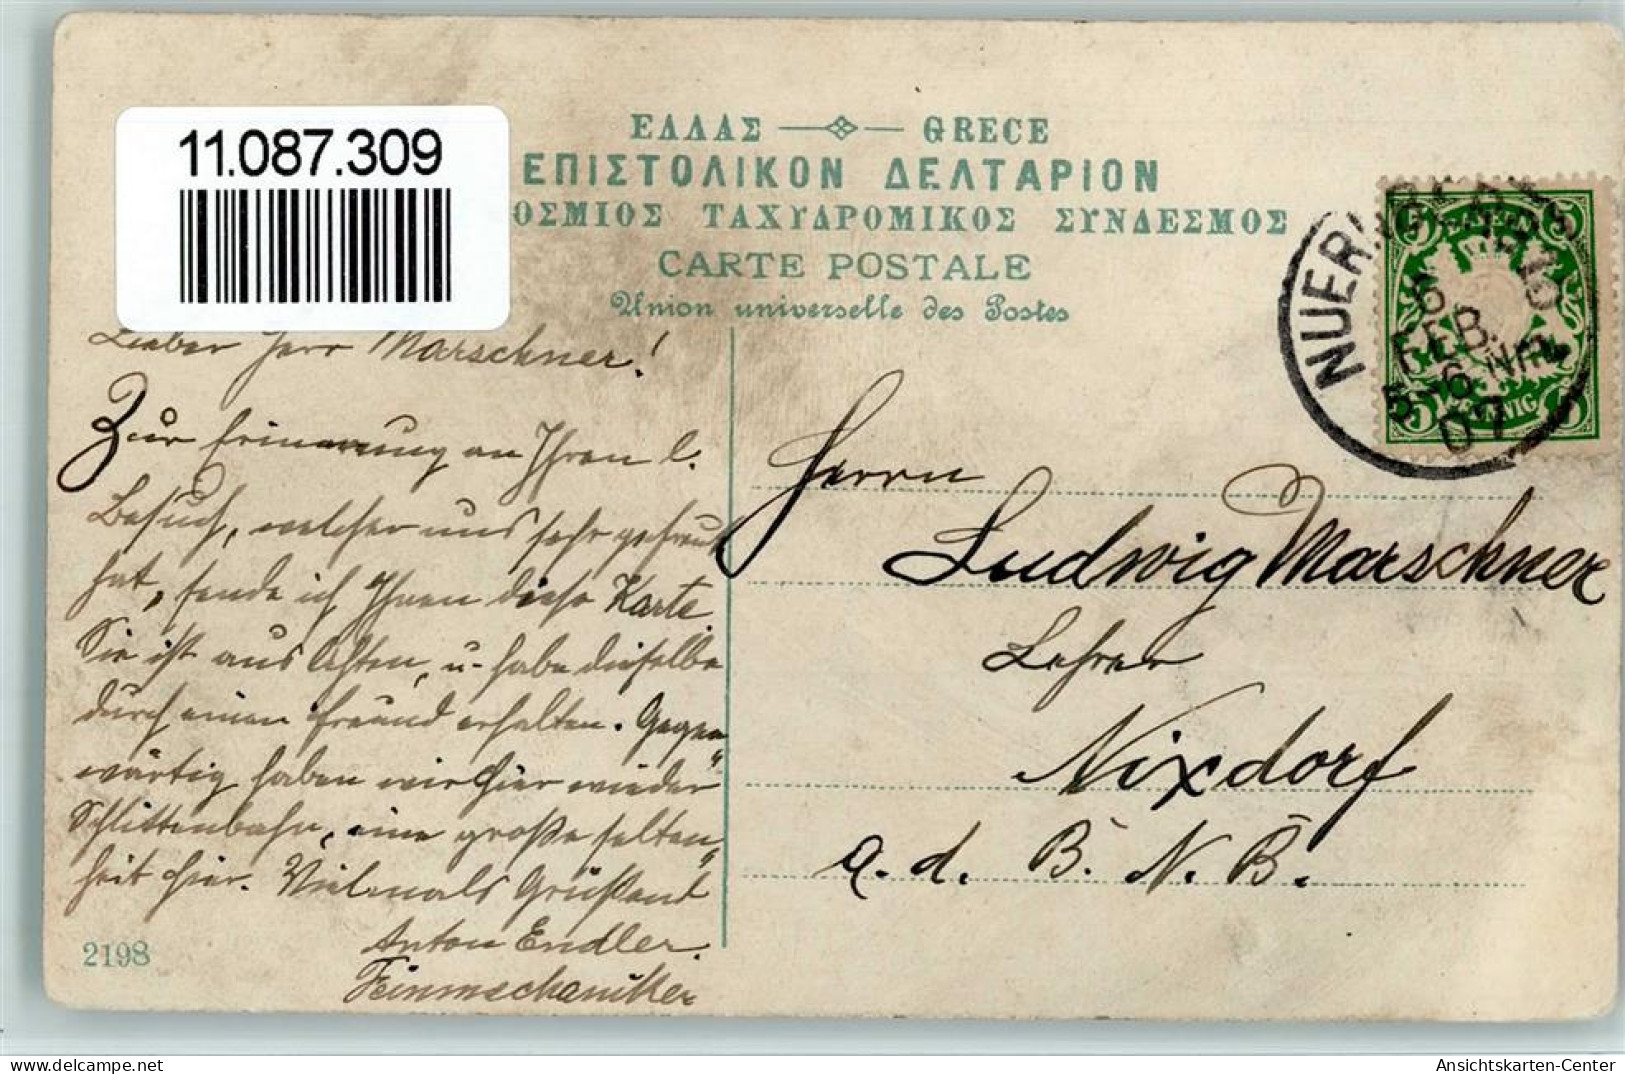 11.087.309
ΕΛΛΑΣ GRECE
ΕΠΙΣΤΟΛΙΚΟΝ ΔΕΛΤΑΡΙΟΝ
ΟΣΜΙΟΣ ΤΑΧΥΔΡΟΜΙΚΟΣ ΣΥΝΔΕΣΜΟΣ
CARTE POSTALE
Union universelle des Postes
Lieber Herr Marschner!
Zur Erinnerung an Ihren l.
Besuch, welcher uns sehr gefreut
hat, sende ich Ihnen diese Karte.
Sie ist aus Athen, u. habe dieselbe
durch einen Freund erhalten. Gegen
wärtig haben wir hier wieder
Schlittenbahn, eine große Selten
heit hier. Vielmals Grüßend
Anton Endler.
Feinmechaniker
2198
NUERNBERG
6.
FEB.
5-6 NM
07
5 5
PFENNIG
5 5
Herrn
Ludwig Marschner
Lehrer
Nixdorf
a. d. B. N. B.
Ansichtskarten-Center